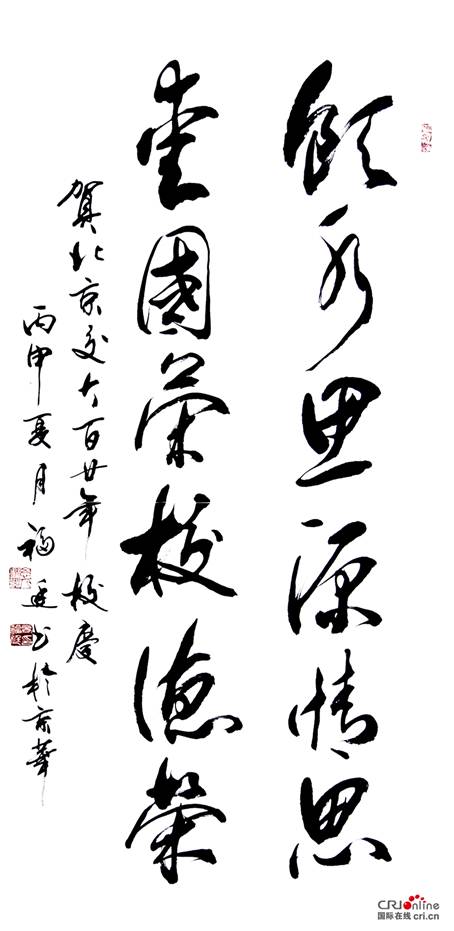 飲水思源情思
愛國榮校德榮
賀北京交大百廿年 校慶
丙申夏月福书於京華
CRIonline
国际在线 cri.cn